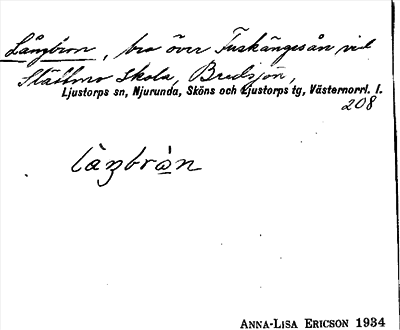 Långbron, bro över Tuskängesån vid
Slättmo skola, Bredsjön,
Ljustorps sn, Njurunda, Sköns och Ljustorps tg, Västernorrl. l.
208
låŋbròn
ANNA-LISA ERICSON 1934